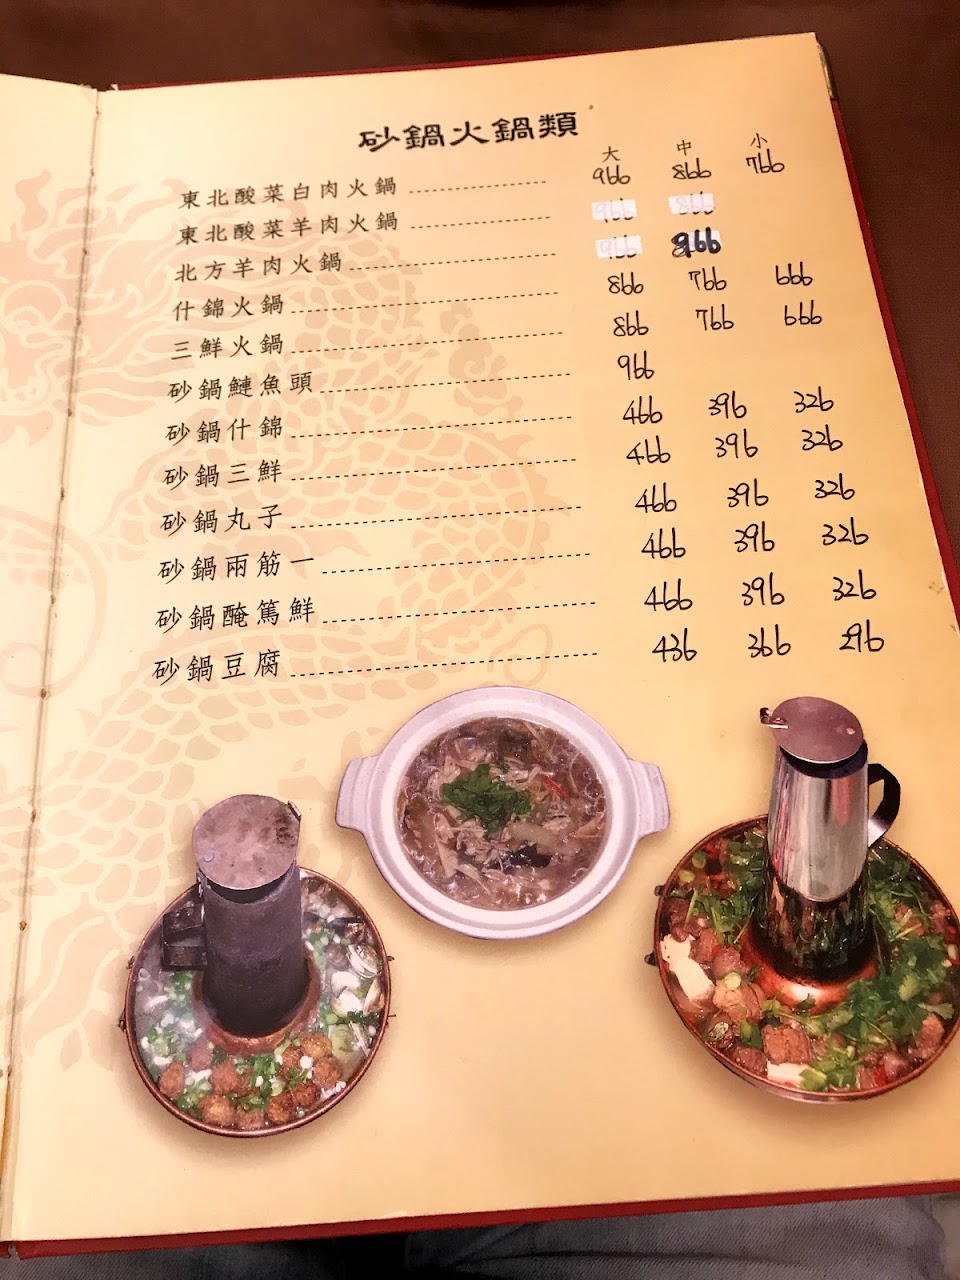 砂鍋火鍋類
大 中 小
東北酸菜白肉火鍋 966 866 766
東北酸菜羊肉火鍋 966 866
北方羊肉火鍋 966 966
什錦火鍋 866 766 666
三鮮火鍋 866 766 666
砂鍋鰱魚頭 966
砂鍋什錦 466 396 326
砂鍋三鮮 466 396 326
砂鍋丸子 466 396 326
砂鍋兩筋一 466 396 326
砂鍋醃篤鮮 466 396 326
砂鍋豆腐 436 366 296